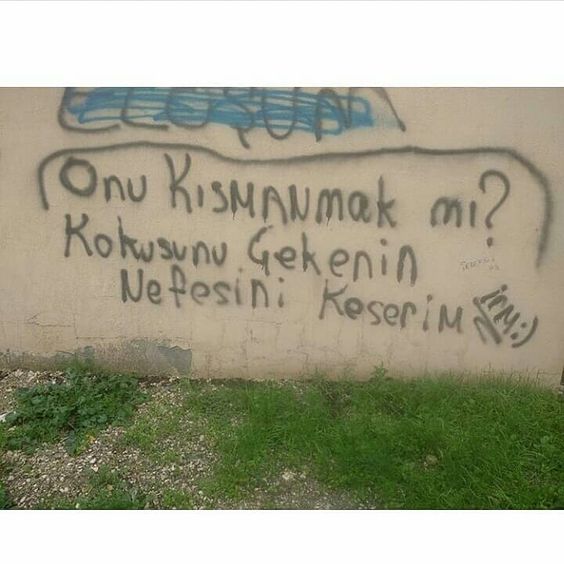 Onu KısMANmak mı?
Kokusunu Çekenin
Nefesini KeseriM